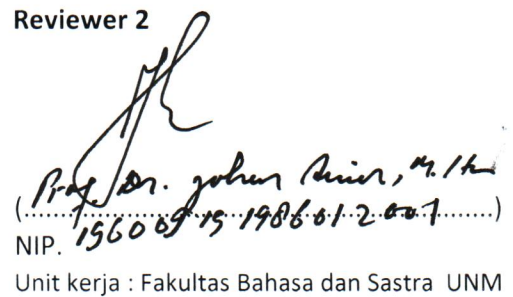 Reviewer 2
Prof. Dr. M.Hum
(........................................................)
NIP. 19600915 198601 2 001
Unit kerja : Fakultas Bahasa dan Sastra UNM